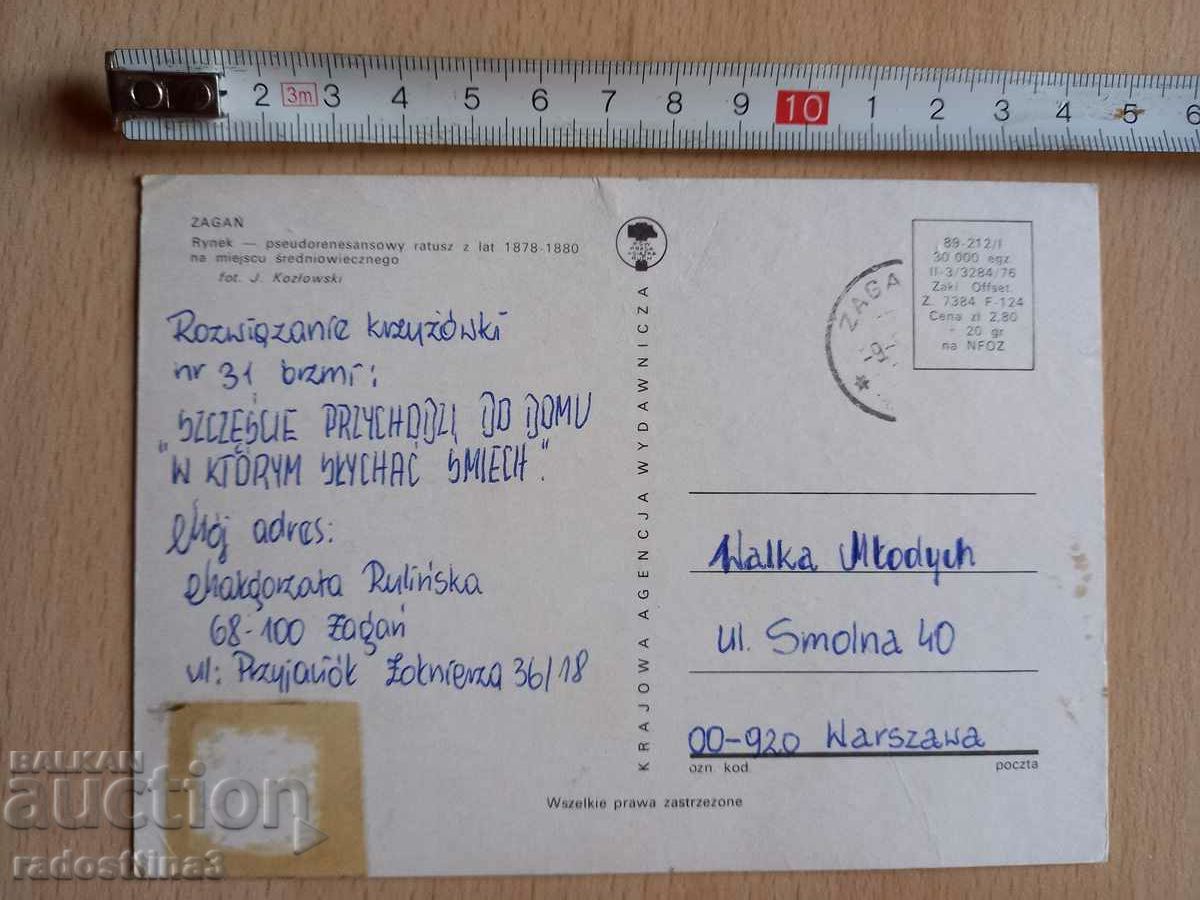 2 3m 3 4 5 6 7 8 9 10 1 2 3 4 5 6
ŻAGAŃ
Rynek — pseudorenesansowy ratusz z lat 1878-1880
na miejscu średniowiecznego
fot. J. Kozłowski
Rozwiązanie krzyżówki
nr 31 brzmi:
"SZCZĘŚCIE PRZYCHODZI, DO DOMU
W KTÓRYM SŁYCHAĆ SMIECH."
Mój adres:
Małgorzata Rulińska
68-100 Żagań
ul: Przyjaciół Żołnierza 36/18
KRAJOWA AGENCJA WYDAWNICZA
RSW
PRASA
KSIĄŻKA
RUCH
ŻAGA
-9-
89-212/I
30 000 egz.
II-3/3284/76
Zakł Offset.
Z. 7384 F-124
Cena zł 2,80
+ 20 gr
na NFOZ
Walka Młodych
ul. Smolna 40
00-920 Warszawa
ozn. kod poczta
Wszelkie prawa zastrzeżone
BALKAN
auction
radosttina3